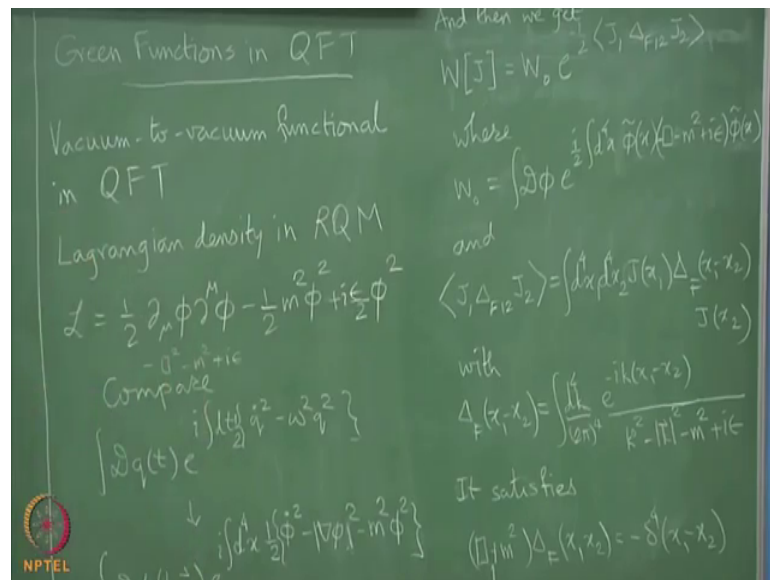 Green Functions in QFT
Vacuum-to-vacuum functional
in QFT
Lagrangian density in RQM
ℒ = 1/2 ∂_μ φ ∂^μ φ - 1/2 m² φ² + i ε/2 φ²
- □² - m² + iε
Compare
∫ 𝒟q(t) e^{i∫dt{1/2 q̇² - ω² q²}}
↓
e^{i∫d⁴x 1/2{φ̇² - |∇φ|² - m² φ²}}
And then we get
W[J] = W₀ e^{-i/2 ⟨J₁ Δ_{F12} J₂⟩}
where
W₀ = ∫ 𝒟φ e^{i/2 ∫d⁴x φ̃(x)(-□ - m² + iε) φ̃(x)}
and
⟨J₁ Δ_{F12} J₂⟩ = ∫d⁴x₁ d⁴x₂ J(x₁) Δ_F(x₁-x₂)
J(x₂)
with
Δ_F(x₁-x₂) = ∫ d⁴k/(2π)⁴ e^{-ik(x₁-x₂)} / k² - |k|² - m² + iε
It satisfies
(□ + m²) Δ_F(x₁,x₂) = -δ⁴(x₁-x₂)
NPTEL